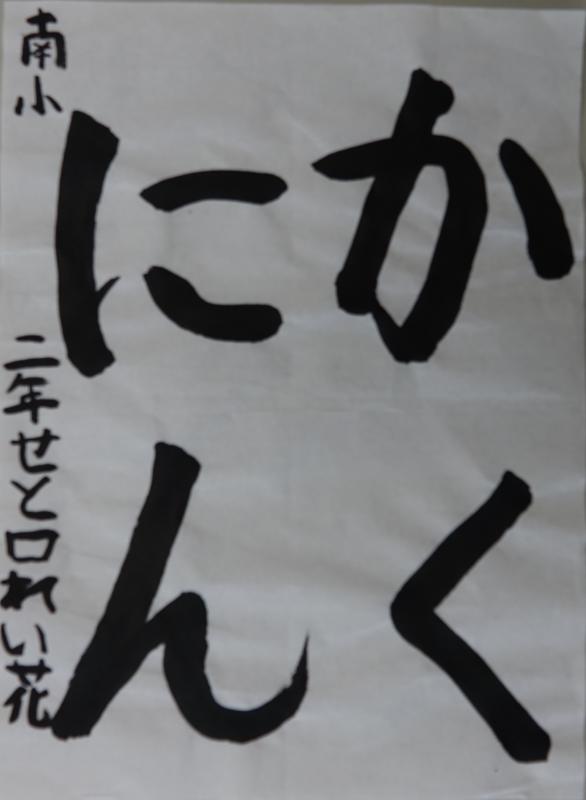 かく
にん
南小
二年せと口れい花